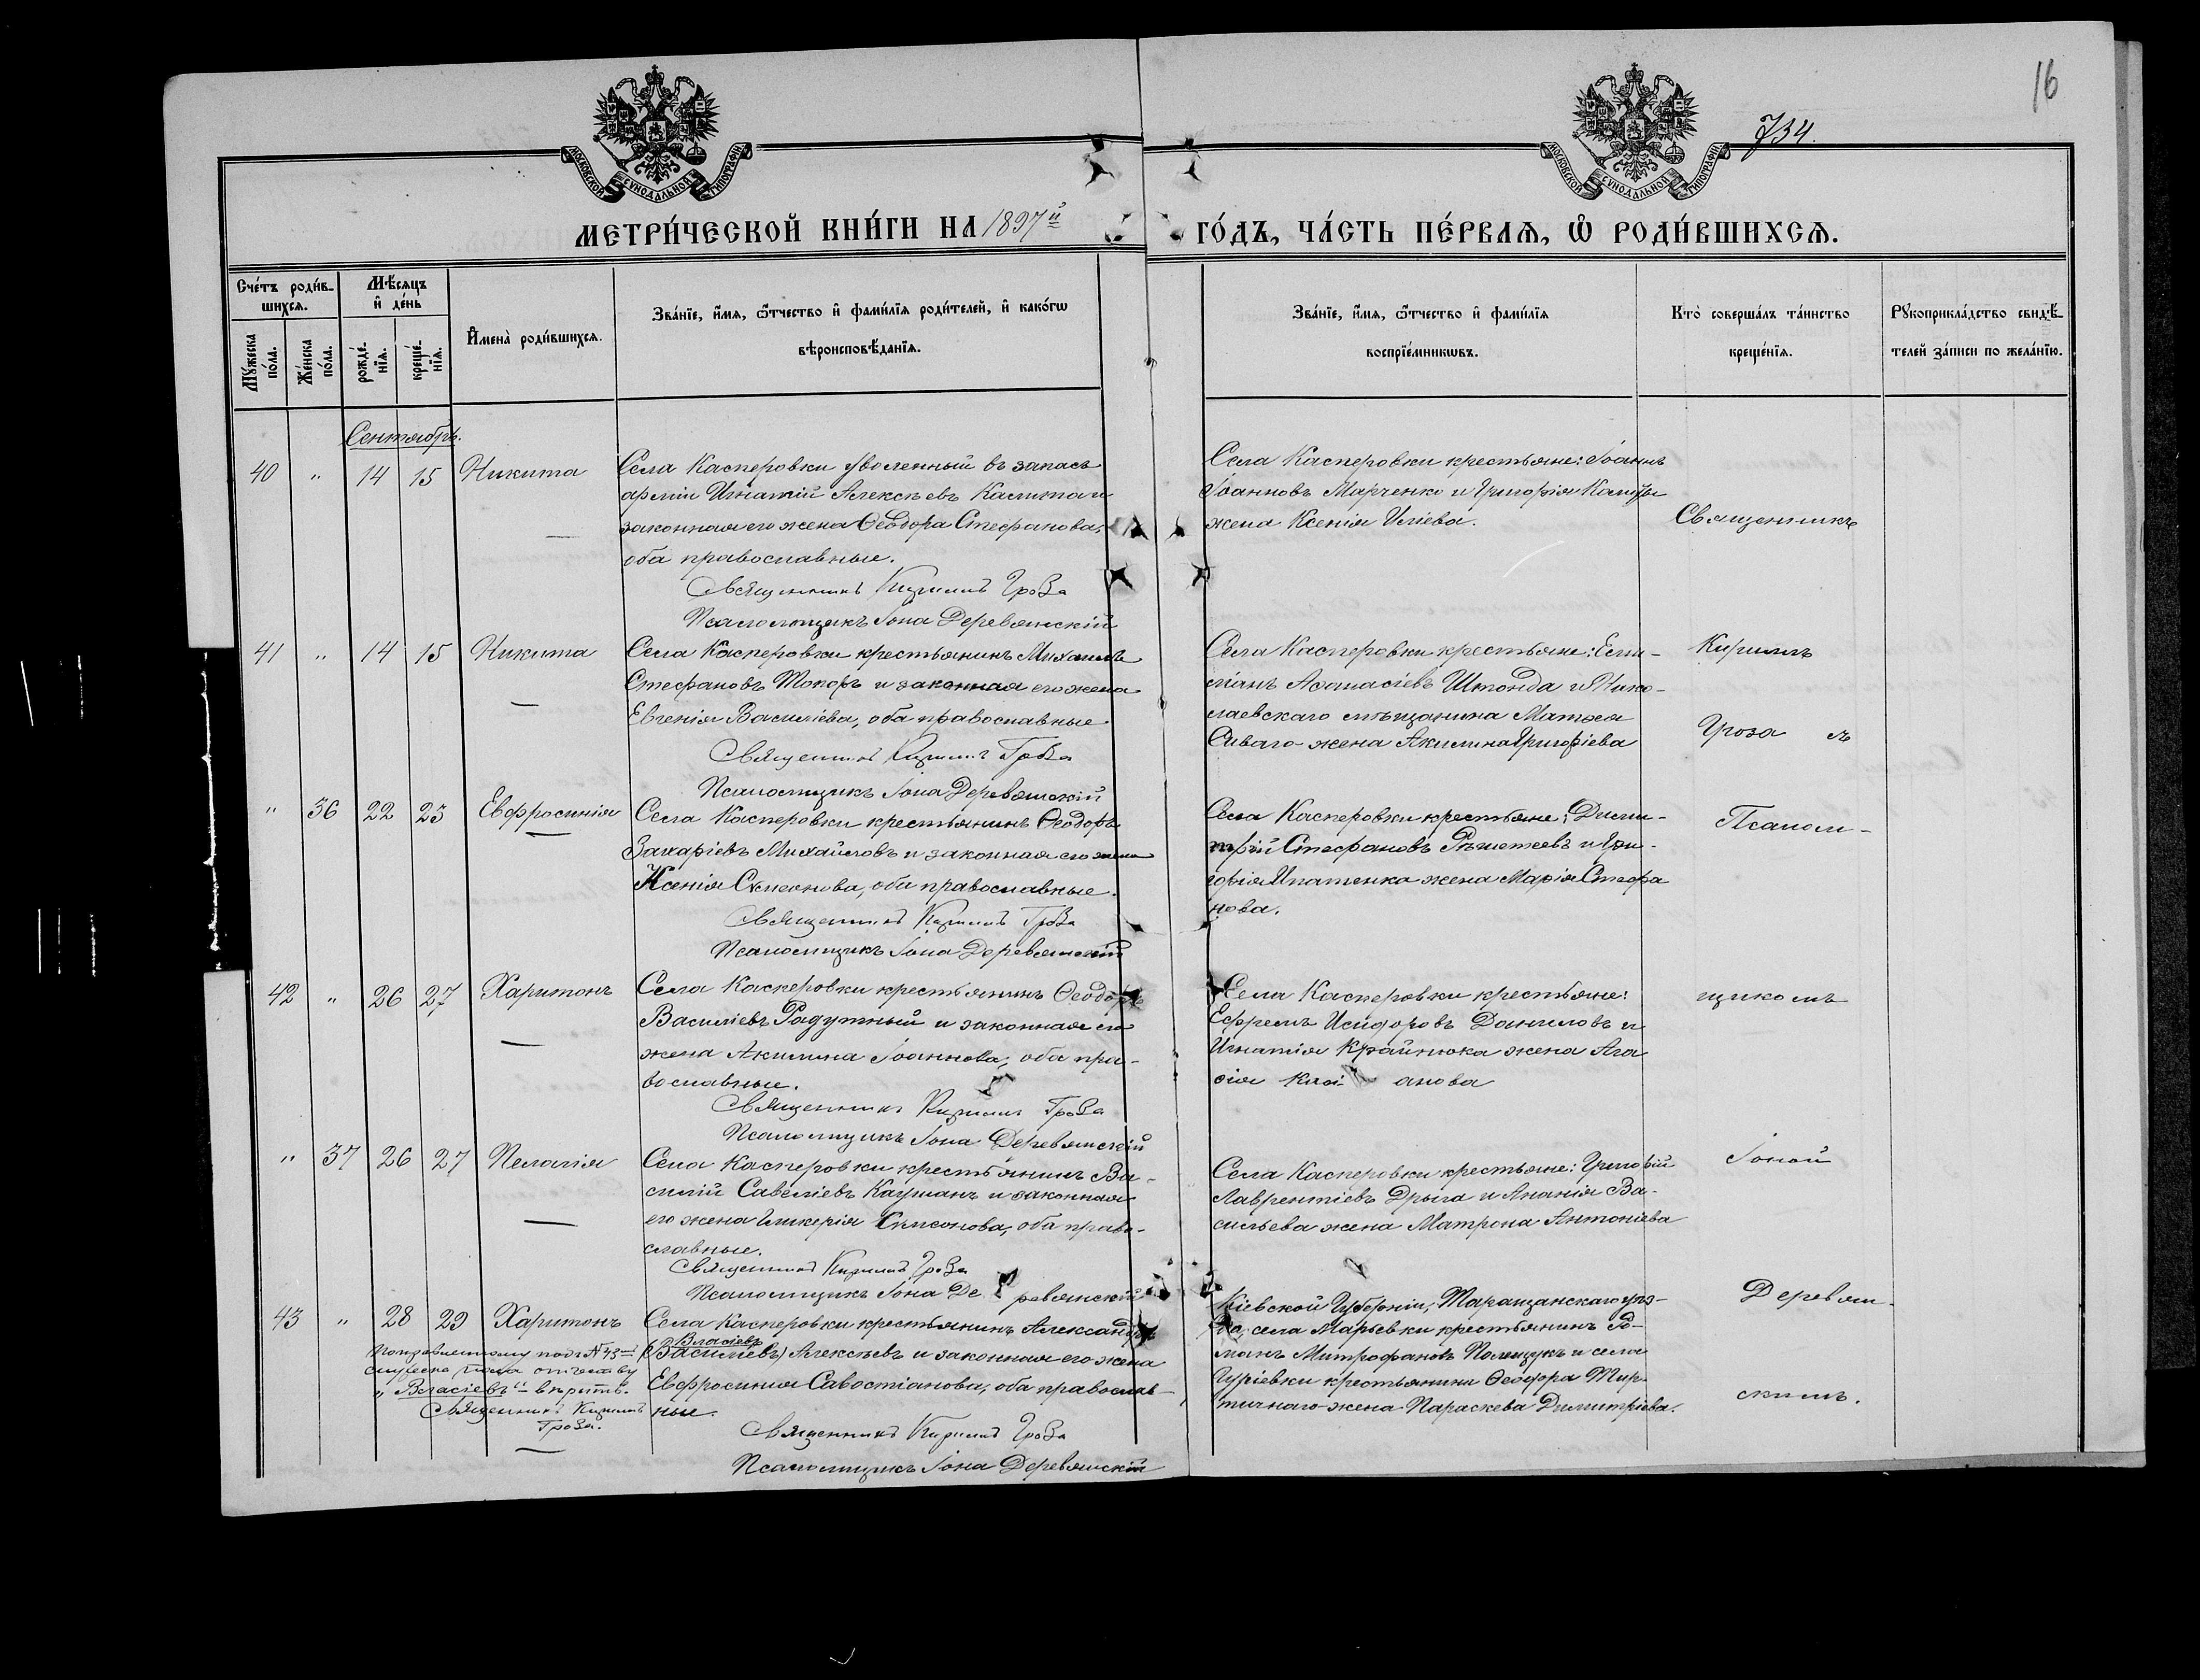 16
734.
МОСКОВСКОЙ СѴНОДАЛЬНОЙ ТИПОГРАФІИ
МОСКОВСКОЙ СѴНОДАЛЬНОЙ ТИПОГРАФІИ
МЕТРИ́ЧЕСКОЙ КНИ́ГИ НА 1897й
ГО́ДЪ, ЧА́СТЬ ПЕ́РВАѦ, Ѡ РОДИ́ВШИХСѦ.
Сче́тъ роди́в-
шихсѧ.
Мꙋ́жеска по́ла.
Же́нска по́ла.
Мѣ́сѧцъ
и де́нь
рожде́-
нїѧ.
креще́-
нїѧ.
И҆мена̀ роди́вшихсѧ.
Зва́нїе, и҆́мѧ, ѻ҆́тчество и҆ фами́лїѧ роди́телей, и҆ како́гѡ
вѣроисповѣ́данїѧ.
Зва́нїе, и҆́мѧ, ѻ҆́тчество и҆ фами́лїѧ
воспрїе́мникѡвъ.
Кто̀ соверша́лъ та́инство
креще́нїѧ.
Рꙋкоприкла́дство свидѣ́-
телей за́писи по жела́нїю.
Сентябрь.
40 " 14 15 Никита
Села Касперовки уволенный въ запасъ
арміи Игнатій Алексѣевъ Калита и
законная его жена Ѳеодора Стефанова,
оба православные.
Священникъ Кириллъ Гроза
Псаломщикъ Іона Деревянскій
Села Касперовки крестьяне: Іоаннъ
Іоанновъ Марченко и Григорія Калиты
жена Ксенія Иліева.
41 " 14 15 Никита
Села Касперовки крестьянинъ Михаилъ
Стефановъ Топоръ и законная его жена
Евгенія Василіева, оба православные
Священникъ Кириллъ Гроза
Псаломщикъ Іона Деревянскій
Села Касперовки крестьяне: Еми-
ліанъ Аѳанасіевъ Штонда и Нико-
лаевскаго мѣщанина Матѳея
Сиваго жена Акилина Григоріева
" 36 22 23 Евфросинія
Села Касперовки крестьянинъ Ѳеодоръ
Захаріевъ Михайловъ и законная его жена
Ксенія Симеонова, оба православные.
Священникъ Кириллъ Гроза
Псаломщикъ Іона Деревянскій
Села Касперовки крестьяне: Дими-
трій Стефановъ Рѣшетеевъ и Гри-
горія Ипатенка жена Марія Стефа
нова.
42 " 26 27 Харитонъ
Села Касперовки крестьянинъ Ѳеодоръ
Василіевъ Радутный и законная его
жена Акилина Іоаннова, оба пра-
вославные.
Священникъ Кириллъ Гроза
Псаломщикъ Іона Деревянскій
Села Касперовки крестьяне:
Ефремъ Исидоровъ Даниловъ и
Игнатія Крайнюка жена Ага
ѳія анова
" 37 26 27 Пелагія
Села Касперовки крестьянинъ Ва-
силій Савеліевъ Кауманъ и законная
его жена Гликерія Симеонова, оба право-
славные.
Священникъ Кириллъ Гроза
Псаломщикъ Іона Деревянскій
Села Касперовки крестьяне: Григорій
Лаврентіевъ Дрыга и Ананія Ва-
сильева жена Матрона Антоніева
43 " 28 29 Харитонъ
Села Касперовки крестьянинъ Александръ
Власіевъ
(Василіевъ) Алексѣевъ и законная его жена
Евфросинія Савостіанова, оба православ-
ные.
Священникъ Кириллъ Гроза
Псаломщикъ Іона Деревянскій
подъ №43
мужеска пола отчеству
„Власіевъ“ – вѣрить.
Священникъ Кириллъ
Гроза.
Кіевской Губерніи, Таращанскаго уѣз-
да, села Марьевки крестьянинъ Ро-
манъ Митрофановъ Полищукъ и села
Гуріевки крестьянина Ѳеодора
жена Параскева Димитріева.
Священникъ
Кириллъ
Гроза съ
Псалом-
щикомъ
Іоной
Деревян-
скимъ.